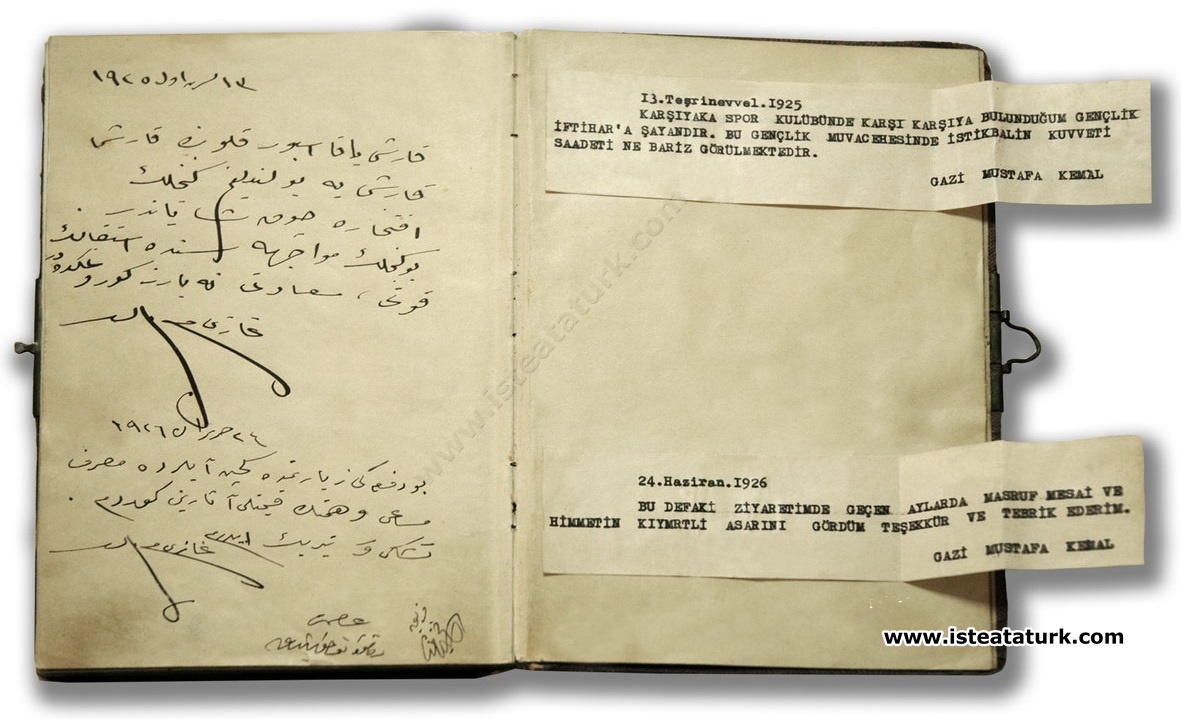 ١٣ تشرين اول ١٩٢٥
قارشى ياقا اسپور قلوبنده قارشى
قارشى يه بولنديغم كنجلك
افتخاره شاياندر
بو كنجلك مواجهه سنده استقبالك
قوتى ، سعادتى نه بارز كورولمكده در
غازى مصطفى كمال
٢٤ حزيران ١٩٢٦
بو دفعه كى زيارتمده كچن آيلرده مصروف
مساعى و همتك قيمتلى آثارينى كوردم .
تشكر و تبريك ايدرم غازى مصطفى كمال
عصمت
13.Teşrinevvel.1925
KARŞIYAKA SPOR KULÜBÜNDE KARŞI KARŞIYA BULUNDUĞUM GENÇLİK
İFTİHAR'A ŞAYANDIR. BU GENÇLİK MUVACEHESİNDE İSTİKBALİN KUVVETİ
SAADETİ NE BARİZ GÖRÜLMEKTEDİR.
GAZİ MUSTAFA KEMAL
24.Haziran.1926
BU DEFAKİ ZİYARETİMDE GEÇEN AYLARDA MASRUF MESAİ VE
HİMMETİN KIYMRTLİ ASARINI GÖRDÜM TEŞEKKÜR VE TEBRİK EDERİM.
GAZİ MUSTAFA KEMAL
www.isteataturk.com
www.isteataturk.com